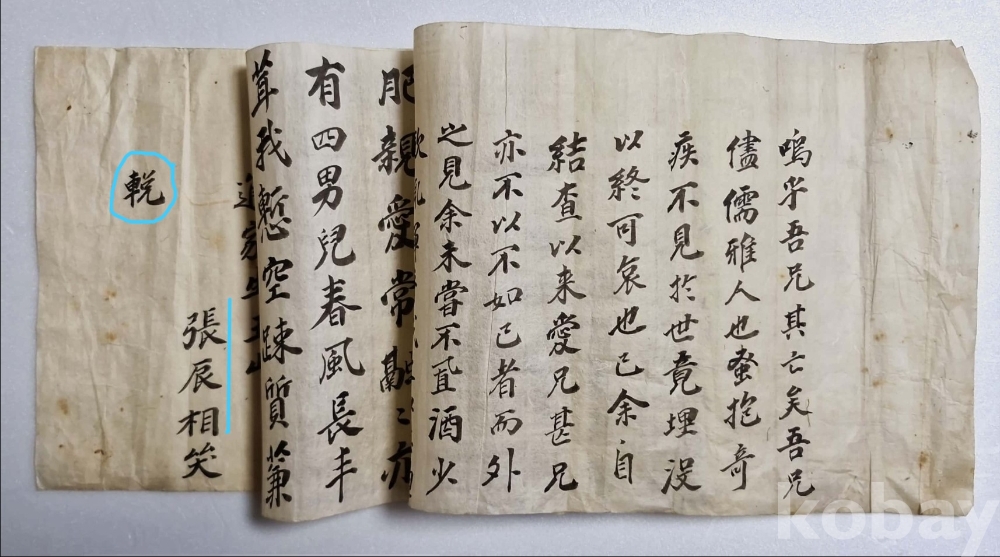 嗚乎吾兄其亡矣吾兄
儘儒雅人也蚤抱奇
疾不見於世竟埋沒
以終可哀也已余自
結査以来愛兄甚兄
亦不以不如已者而外
之見余未嘗不置酒少
肥親愛常融〻亦
有四男兒春風長丰
茸我慙空踈質蒹
張辰相哭
輓
kobay